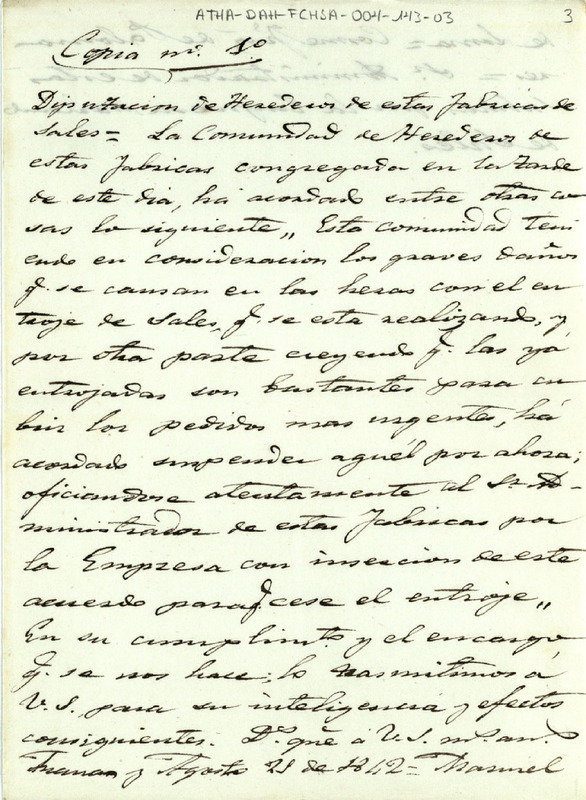 ATHA-DAH-FCHSA-004-143-03
3
Copia nº. 1º
Diputacion de Herederos de estas fabricas de
Sales= La Comunidad de Herederos de
estas fabricas congregada en la tarde
de este dia, há acordado entre otras co
sas lo siguiente,, Esta comunidad teni
endo en consideracion los graves daños
q. se causan en las heras con el en
troje de Sales, q. se esta realizando, y
por otra parte creyendo q. las ya
entrojadas son bastantes para cu
brir los pedidos mas urgentes, há
acordado suspender aquél por ahora;
oficiandose atentamente al Sr. Ad-
ministrador de estas Fabricas por
la Empresa con insercion de este
acuerdo para q. cese el entroje,,
En su cumplimto. y el encargo
q. se nos hace, lo trasmitimos á
V. S. para su inteligencia y efectos
consiguientes. Ds. gue. á V. S. ms. an.
Añana y Agosto 21 de 1842= Manuel